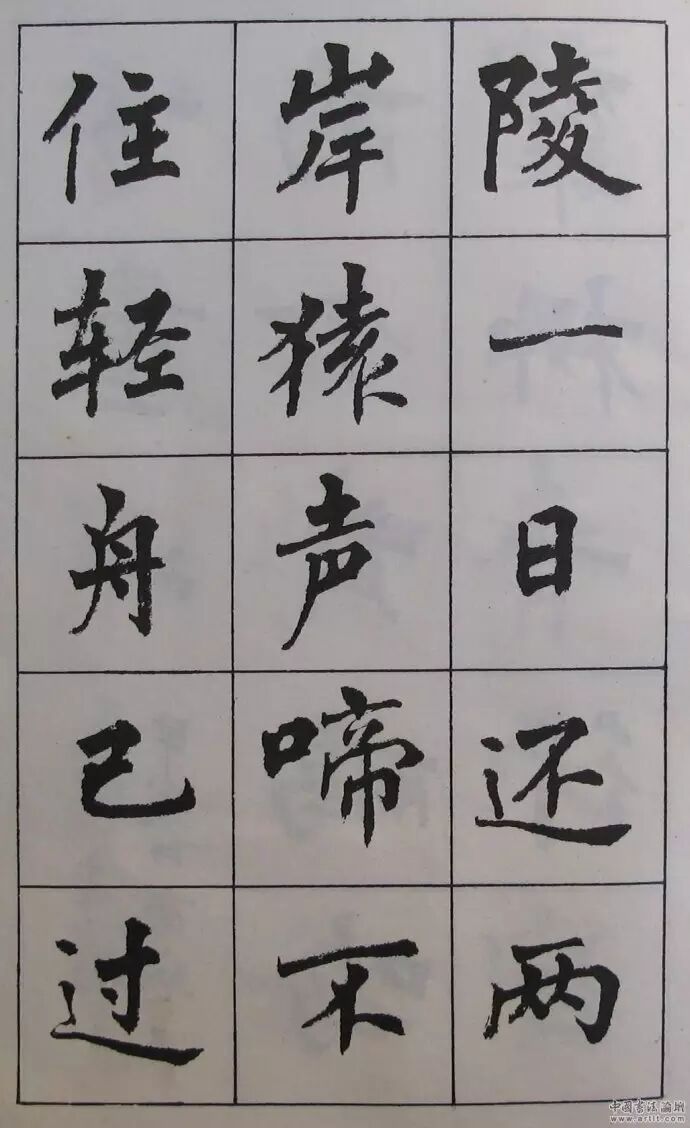 陵一日还两
岸猿声啼不
住轻舟已过
中国书法论坛
www.artlt.com